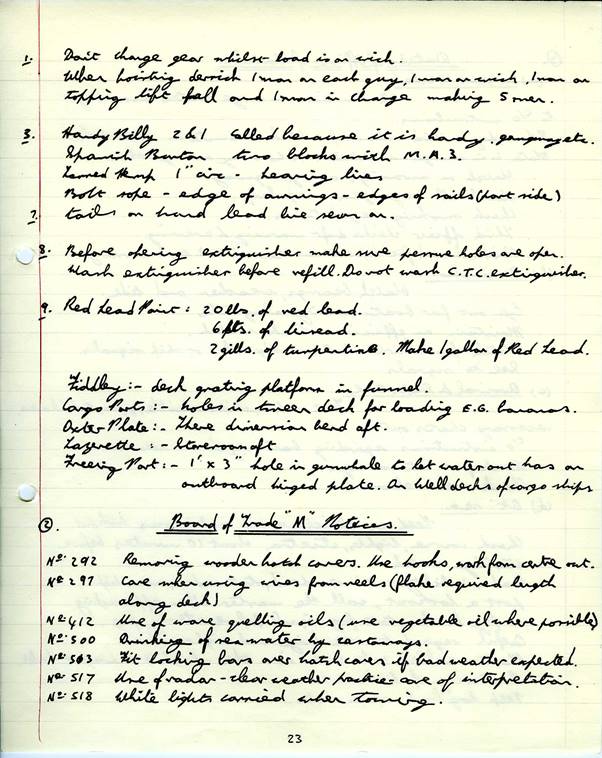 1. Don't change gear whilst load is on wich.
When hoisting derrick 1 man on each guy, 1 man on wich, 1 man on
topping lift fall and 1 man in charge making 5 men.
3. Handy Billy 2 & 1 called because it is handy, gangway etc.
Spanish Burton two blocks with M.A.3.
Tarred Hemp 1" circ - heaving lines
Bolt rope - edge of awnings - edges of sails (port side)
7. tails on hand lead line sewn on.
8. Before opening extinguisher make sure pressure holes are open.
Wash extinguisher before refill. Do not wash C.T.C. extinguisher.
9. Red Lead Paint : 20 lbs. of red lead.
6 pts. of linseed.
2 gills. of turpentine. Make 1 gallon of Red Lead.
Fiddley :- deck grating platform in funnel.
Cargo Ports :- holes in tween deck for loading E.G. bananas.
Oxter Plate :- Three dimension bend aft.
Lazerette :- Storeroom aft
Freeing Port :- 1' x 3" hole in gunwhale to let water out has an
outboard hinged plate. On Well decks of cargo ships
②. Board of Trade "M" Notices.
No. 292 Removing wooden hatch covers. Use hooks, work from centre out.
No. 297 Care when using wires from reels (flake required length
along deck)
No. 412 Use of wave quelling oils (use vegetable oil where possible)
No. 500 Drinking of sea water by castaways.
No. 503 Fit locking bars over hatch covers if bad weather expected.
No. 517 Use of radar - clear weather practice - care of interpretation.
No. 518 White lights carried when towing.
23